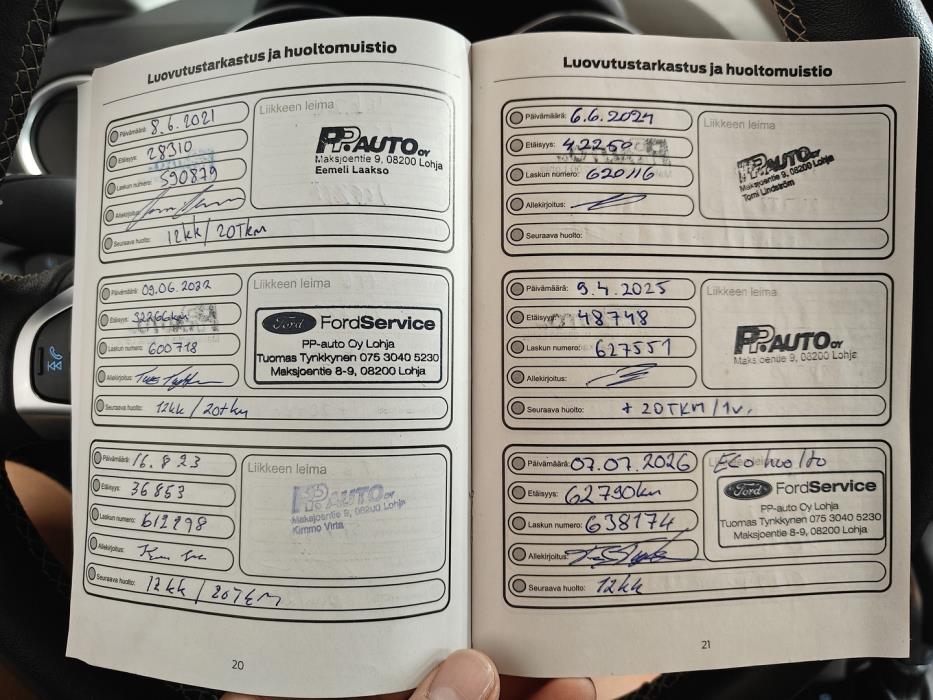 Luovutustarkastus ja huoltomuistio
Päivämäärä: 8.6.2021
Etäisyys: 28310
Laskun numero: 590879
Allekirjoitus:
Seuraava huolto: 12kk / 20Tkm
Liikkeen leima
PP-AUTO OY
Maksjoentie 9, 08200 Lohja
Eemeli Laakso
Päivämäärä: 09.06.2022
Etäisyys: 32266km
Laskun numero: 600718
Allekirjoitus:
Seuraava huolto: 12kk / 20tkm
Liikkeen leima
Ford FordService
PP-auto Oy Lohja
Tuomas Tynkkynen 075 3040 5230
Maksjoentie 8-9, 08200 Lohja
Päivämäärä: 16.8 23
Etäisyys: 36853
Laskun numero: 612298
Allekirjoitus:
Seuraava huolto: 12kk / 20TKM
Liikkeen leima
PP-AUTO OY
Maksjoentie 9, 08200 Lohja
Kimmo Virta
20
Luovutustarkastus ja huoltomuistio
Päivämäärä: 6.6.2024
Etäisyys: 42260
Laskun numero: 620116
Allekirjoitus:
Seuraava huolto:
Liikkeen leima
PP-AUTO OY
Maksjoentie 9, 08200 Lohja
Tomi Lindström
Päivämäärä: 9.4.2025
Etäisyys: 48748
Laskun numero: 627551
Allekirjoitus:
Seuraava huolto: + 20TKM/1v.
Liikkeen leima
PP-AUTO OY
Maksjoentie 9, 08200 Lohja
Päivämäärä: 07.07.2026
Etäisyys: 62790km
Laskun numero: 638174
Allekirjoitus:
Seuraava huolto: 12kk
Liikkeen leima
Eco huolto
Ford FordService
PP-auto Oy Lohja
Tuomas Tynkkynen 075 3040 5230
Maksjoentie 8-9, 08200 Lohja
21